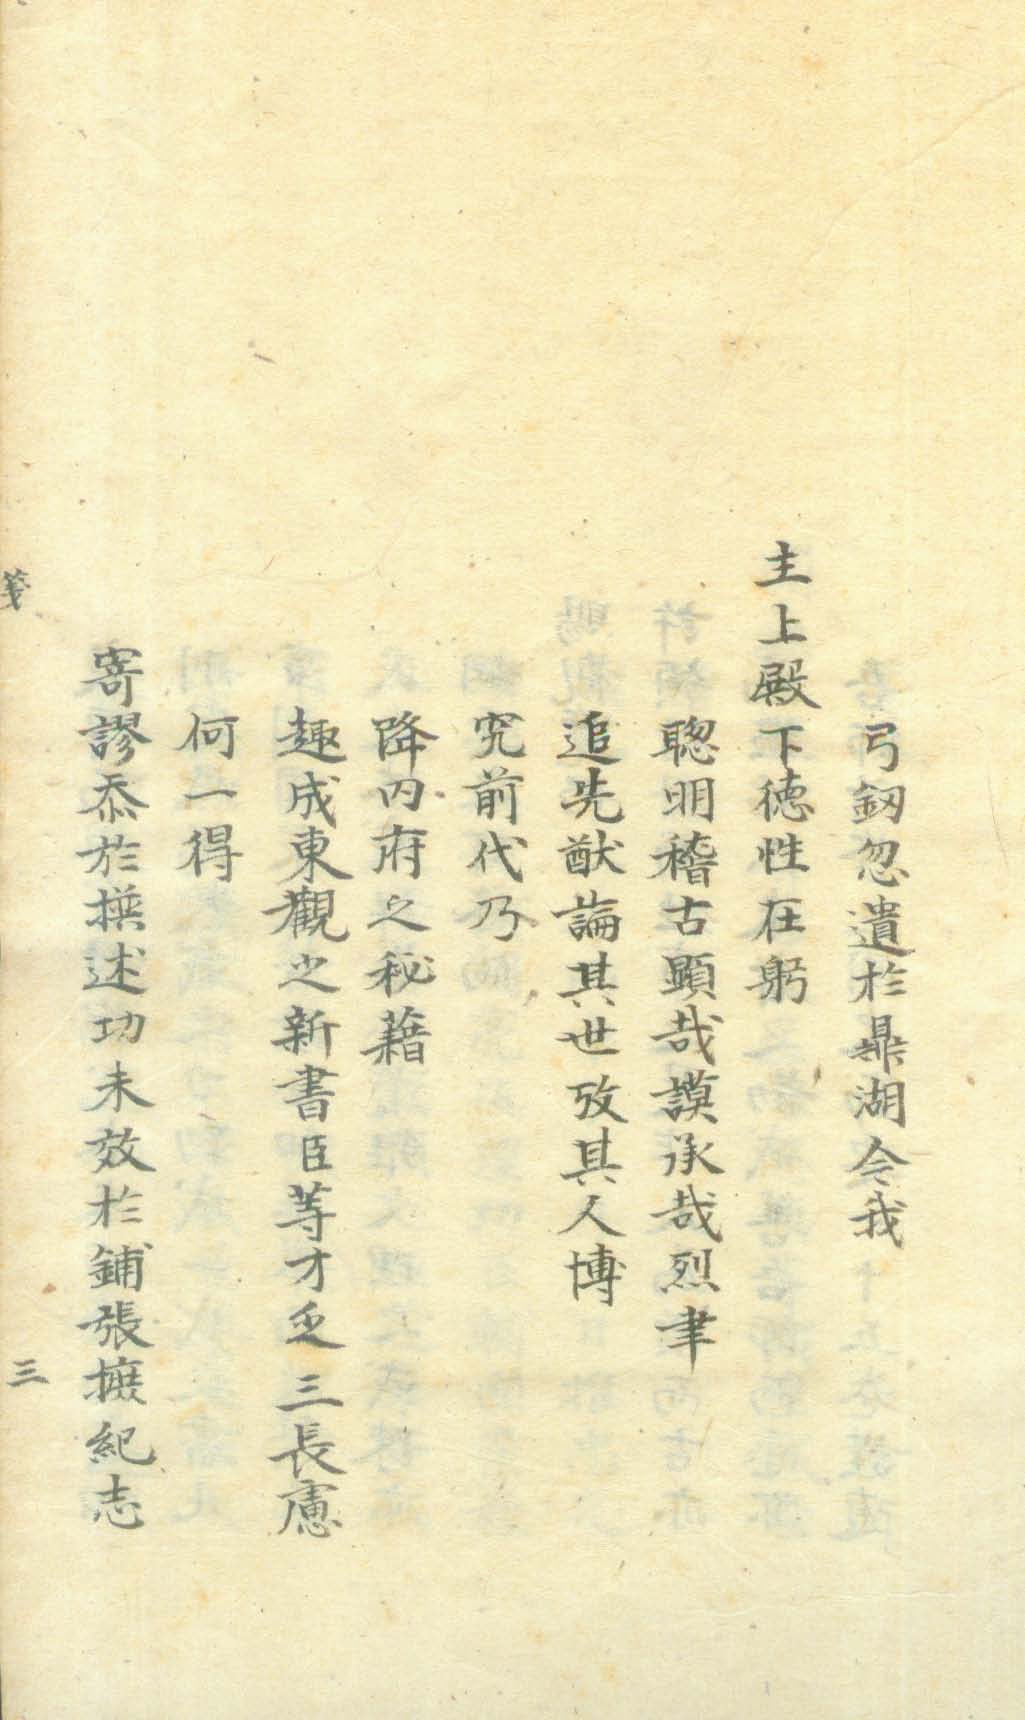 弓釼忽遺於鼎湖今我
主上殿下德性在躬
聰明稽古顯哉謨承哉烈聿
追先猷論其世攷其人博
究前代乃
降內府之秘藉
趣成東觀之新書臣等才乏三長慮
何一得
寄謬忝於撰述功未效於鋪張摭紀志
箋
三